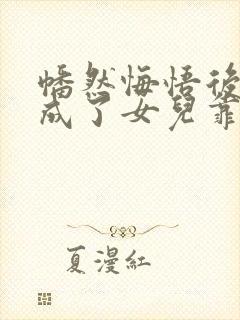 幡然悔悟後
成了女兒靠
夏漫紅